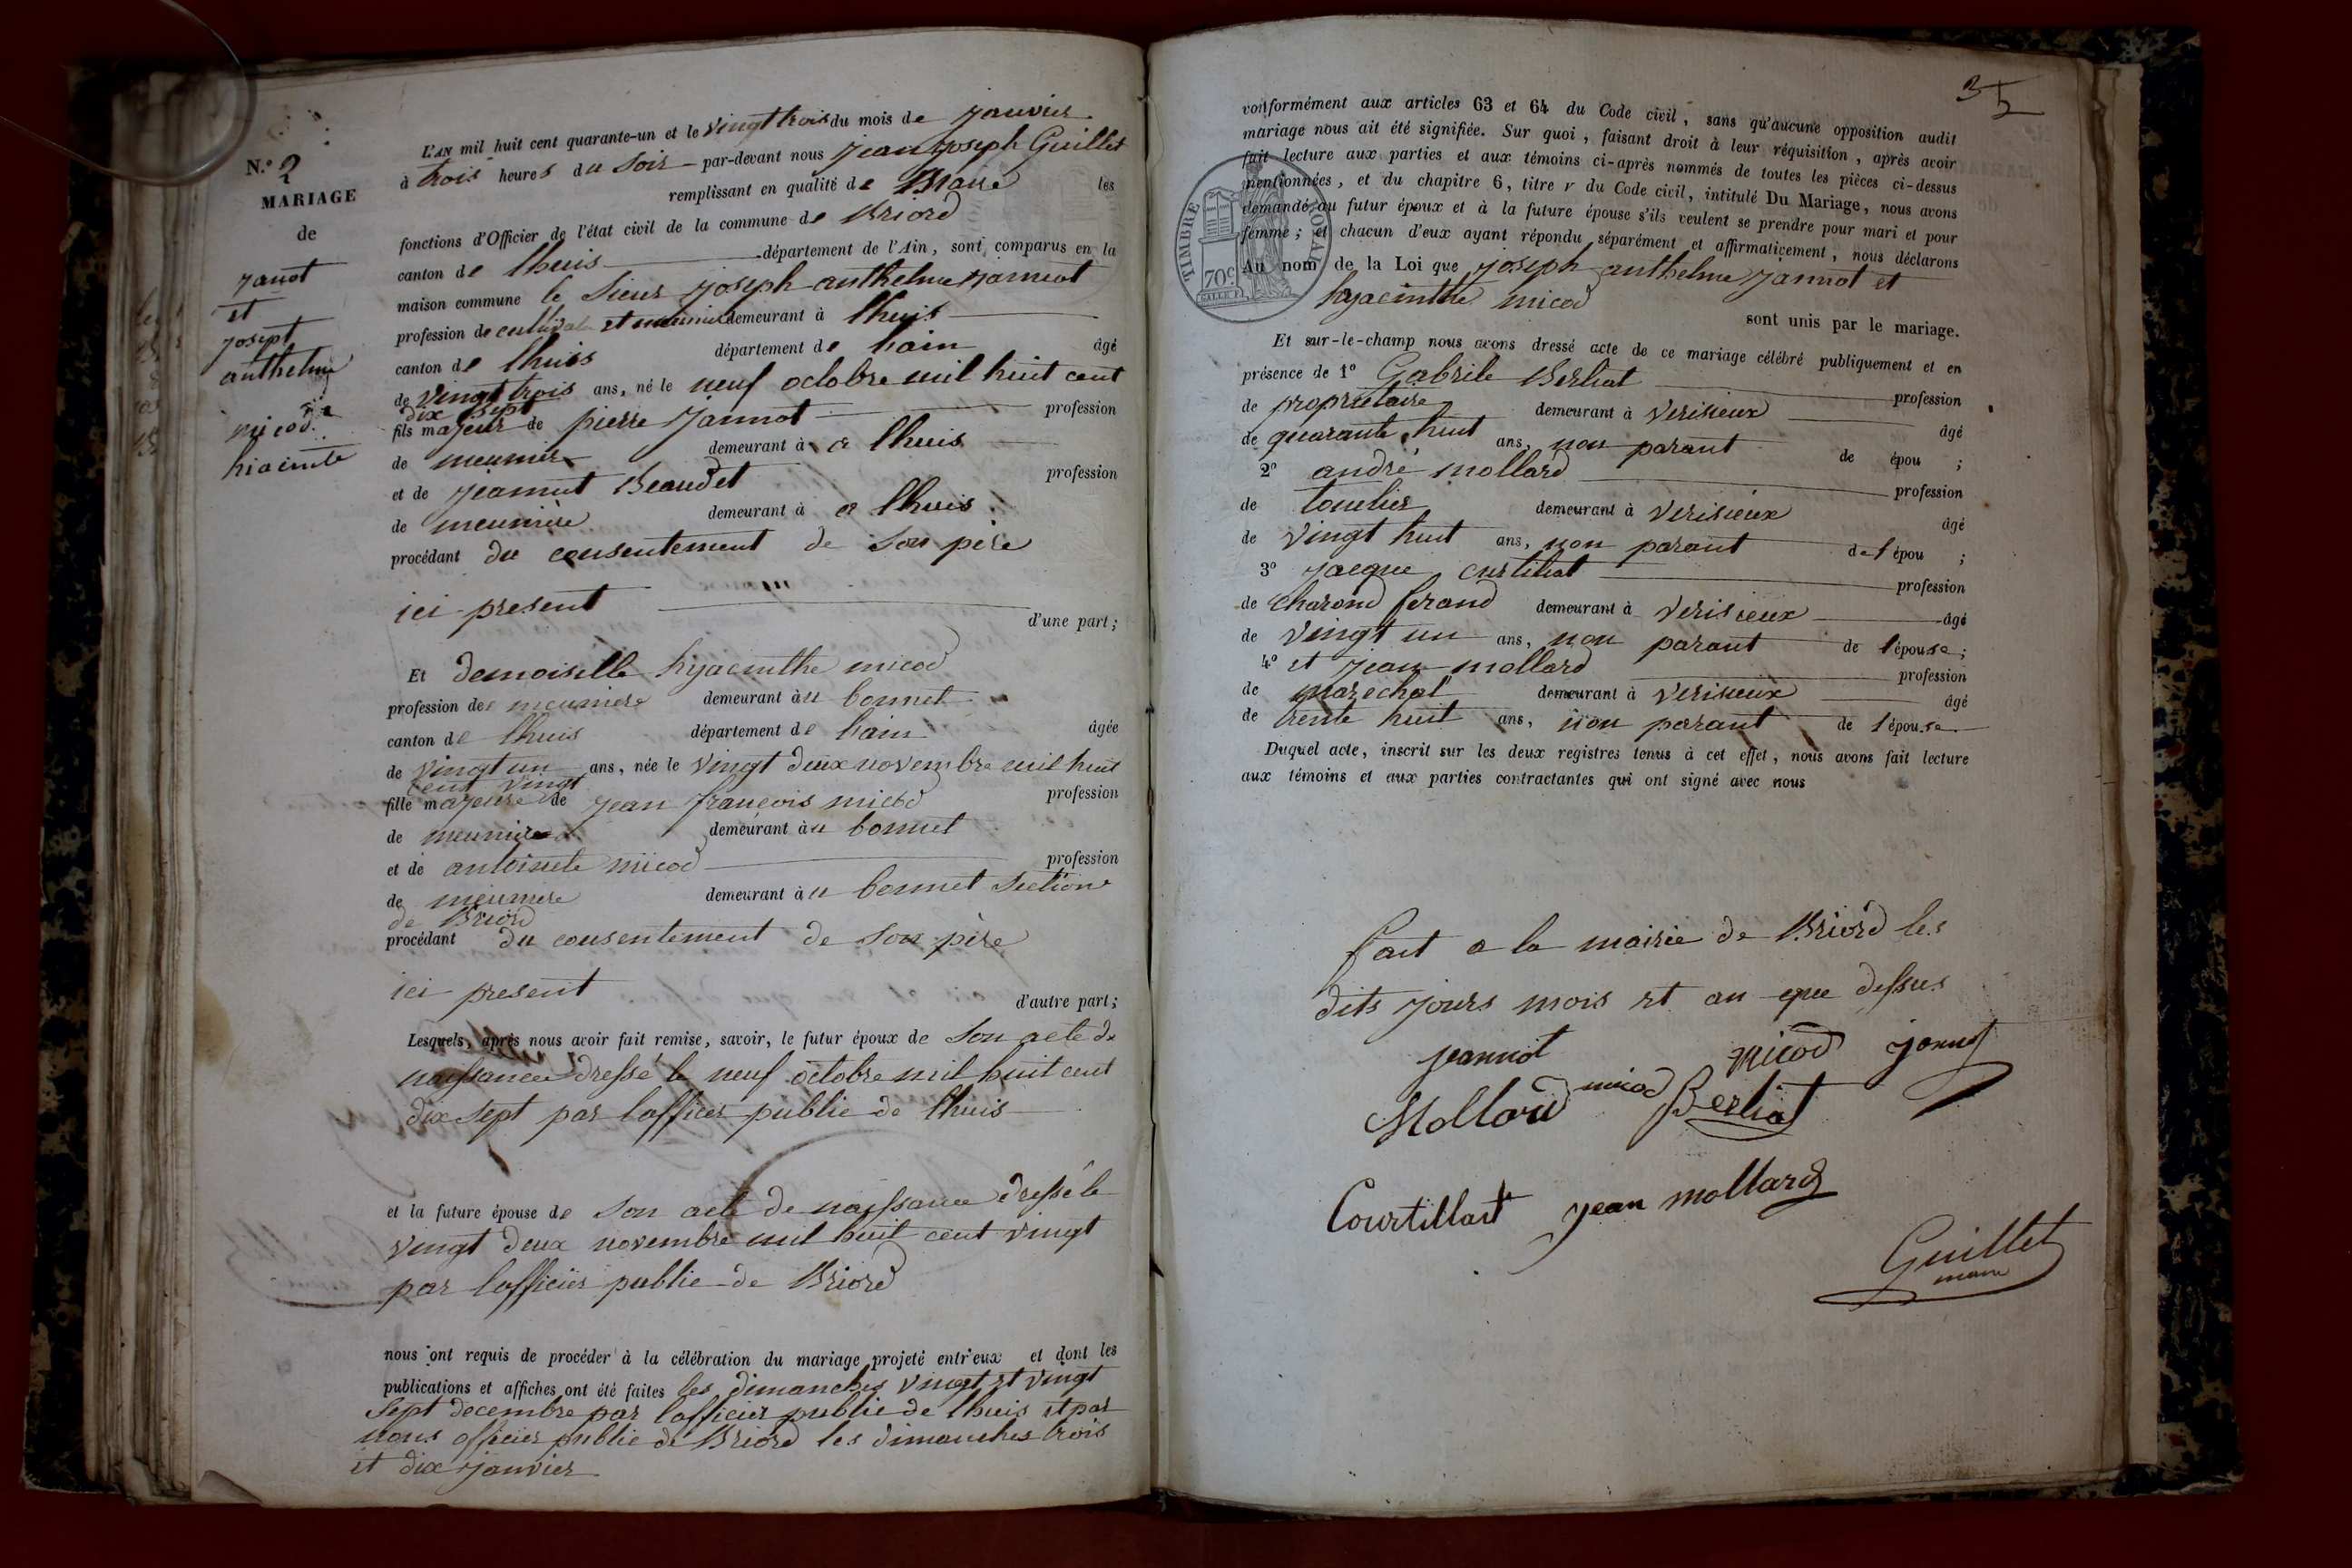 N.º 2
MARIAGE
de
janot
et
josept
anthelme
micod
hiacinte
L'AN mil huit cent quarante-un et le vingt trois du mois de janvier
à trois heures du soir par-devant nous jean joseph Guillet
remplissant en qualité de Maire les
fonctions d'Officier de l'état civil de la commune de Briord
canton de lhuis département de l'Ain, sont comparus en la
maison commune le sieur joseph anthelme jannot
profession de cultivateur et meunier demeurant à lhuis
canton de lhuis département de lain âgé
de vingt trois ans, né le neuf octobre mil huit cent
dix sept
fils majeur de pierre jannot profession
de meunier demeurant à a lhuis
et de jeannet Beaudet profession
de meunière demeurant à a lhuis
procédant du consentement de son père
ici present
d'une part;
Et demoiselle hyacinthe micod
profession de meuniere demeurant àu bonnet
canton de lhuis département de lain âgée
de vingt un ans, née le vingt deux novembre mil huit
cent vingt
fille majeure de jean francois micod profession
de meunier demeurant àu bonnet
et de antoinete micod profession
de meuniere demeurant àu bonnet section
de Briord
procédant du consentement de son père
ici present
d'autre part;
Lesquels, après nous avoir fait remise, savoir, le futur époux de son acte de
naissance dressé le neuf octobre mil huit cent
dix sept par lofficier public de lhuis
et la future épouse de son acte de naissance dressé le
vingt deux novembre mil huit cent vingt
par lofficier public de Briord
nous ont requis de procéder à la célébration du mariage projeté entr'eux et dont les
publications et affiches ont été faites les dimanches vingt et vingt
sept decembre par lofficier public de lhuis et par
nous officier public de Briord les dimanches trois
et dix janvier
35
conformément aux articles 63 et 64 du Code civil, sans qu'aucune opposition audit
mariage nous ait été signifiée. Sur quoi, faisant droit à leur réquisition, après avoir
fait lecture aux parties et aux témoins ci-après nommés de toutes les pièces ci-dessus
mentionnées, et du chapitre 6, titre v du Code civil, intitulé Du Mariage, nous avons
demandé au futur époux et à la future épouse s'ils veulent se prendre pour mari et pour
femme; et chacun d'eux ayant répondu séparément et affirmativement, nous déclarons
Au nom de la Loi que joseph anthelme jannot et
hyacinthe micod
sont unis par le mariage.
TIMBRE ROYAL
70c
Et sur-le-champ nous avons dressé acte de ce mariage célébré publiquement et en
présence de 1º Gabrile Berliat profession
de propriétaire demeurant à verisieux âgé
de quarante huit ans, non parant de épou ;
2º andré mollard profession
de tonelier demeurant à verisieux âgé
de vingt huit ans, non parant de l'épou ;
3º jacque curtillat profession
de charond ferand demeurant à verisieux âgé
de vingt un ans, non parant de l'épouse;
4º et jean mollard profession
de marechal demeurant à verisieux âgé
de trente huit ans, non parant de l'épouse
Duquel acte, inscrit sur les deux registres tenus à cet effet, nous avons fait lecture
aux témoins et aux parties contractantes qui ont signé avec nous
fait a la mairie de Briord les
dits jours mois et an que dessus
jeannot micod
Mollard micod Berliat
Courtillat jean mollard
Guillet
maire